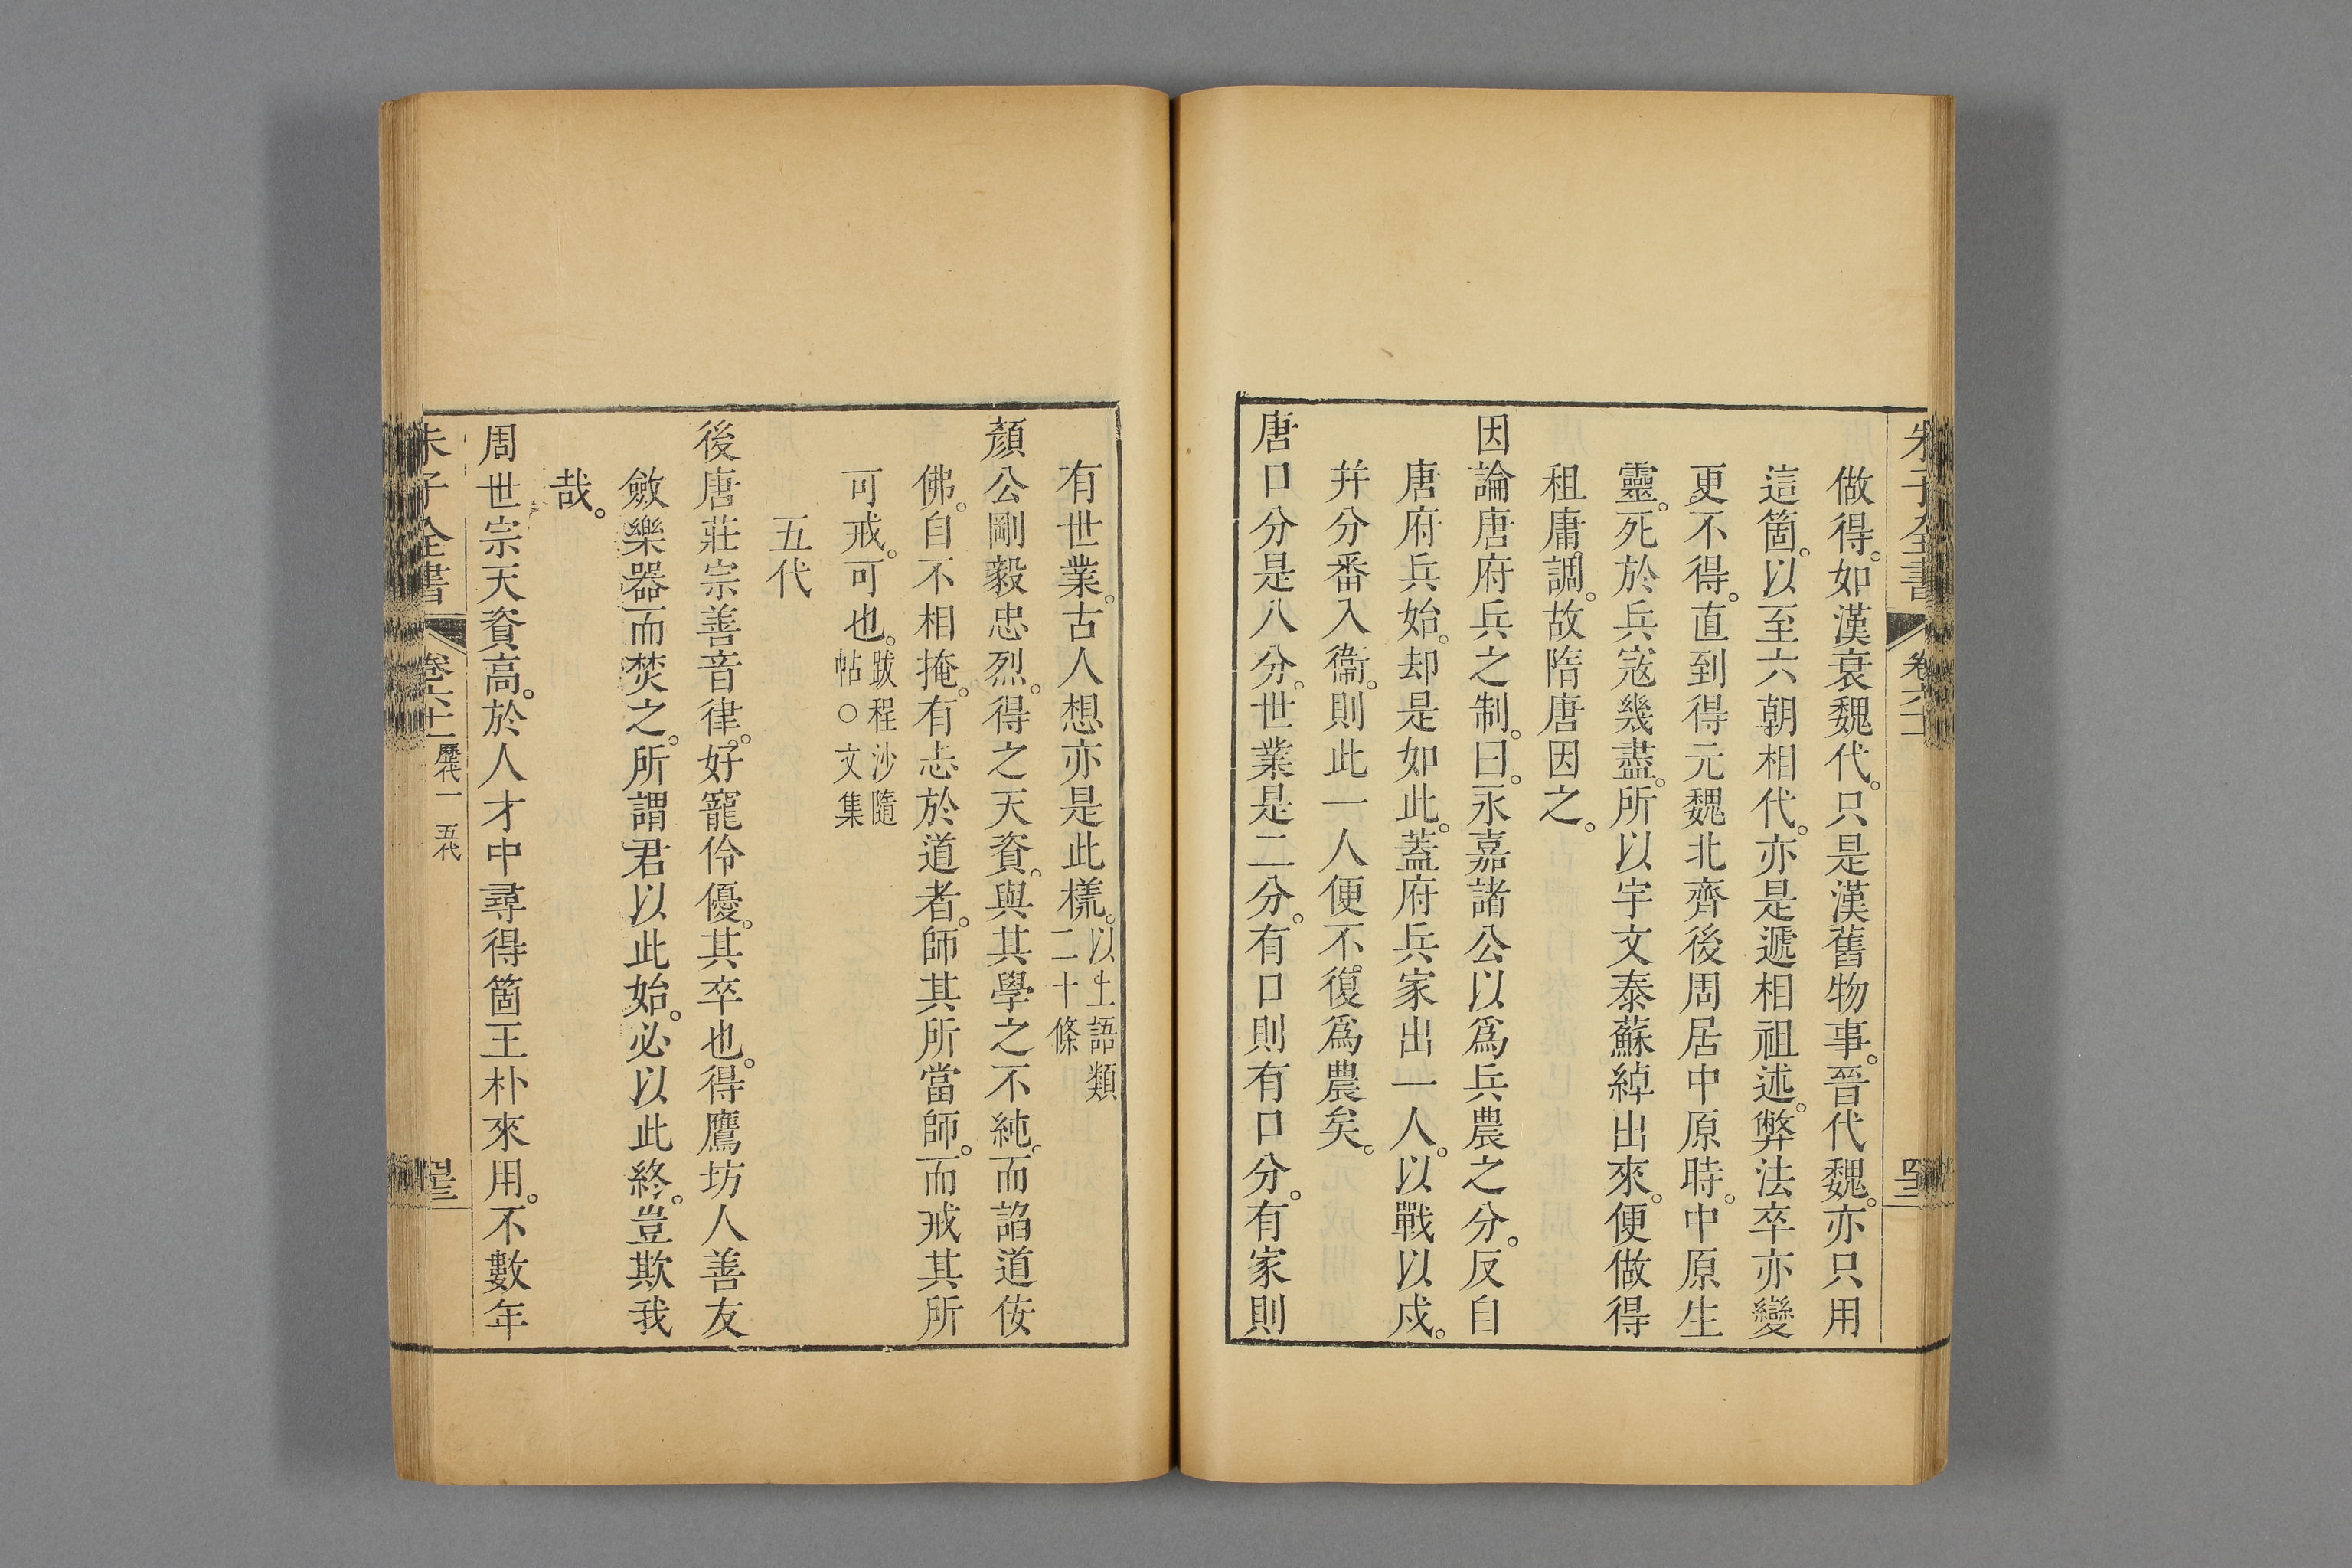 朱子全書 卷六十
做得。如漢衰魏代。只是漢舊物事。晉代魏。亦只用
這箇。以至六朝相代。亦是遞相祖述。弊法卒亦變
更不得。直到得元魏北齊後周居中原時。中原生
靈。死於兵寇幾盡。所以宇文泰蘇綽出來。便做得
租庸調。故隋唐因之。
因論唐府兵之制。曰。永嘉諸公以爲兵農之分。反自
唐府兵始。却是如此。蓋府兵家出一人。以戰以戍。
并分番入衞。則此一人便不復爲農矣。
唐口分是八分。世業是二分。有口則有口分。有家則
有世業。古人想亦是此㨾。以上語類
二十條
顏公剛毅忠烈。得之天資。與其學之不純。而諂道佞
佛。自不相掩。有志於道者。師其所當師。而戒其所
可戒。可也。跋程沙隨
帖○文集
五代
後唐莊宗善音律。好寵伶優。其卒也。得鷹坊人善友
斂樂器而焚之。所謂君以此始。必以此終。豈欺我
哉。
周世宗天資高。於人才中尋得箇王朴來用。不數年
朱子全書 卷六十 歷代一 五代